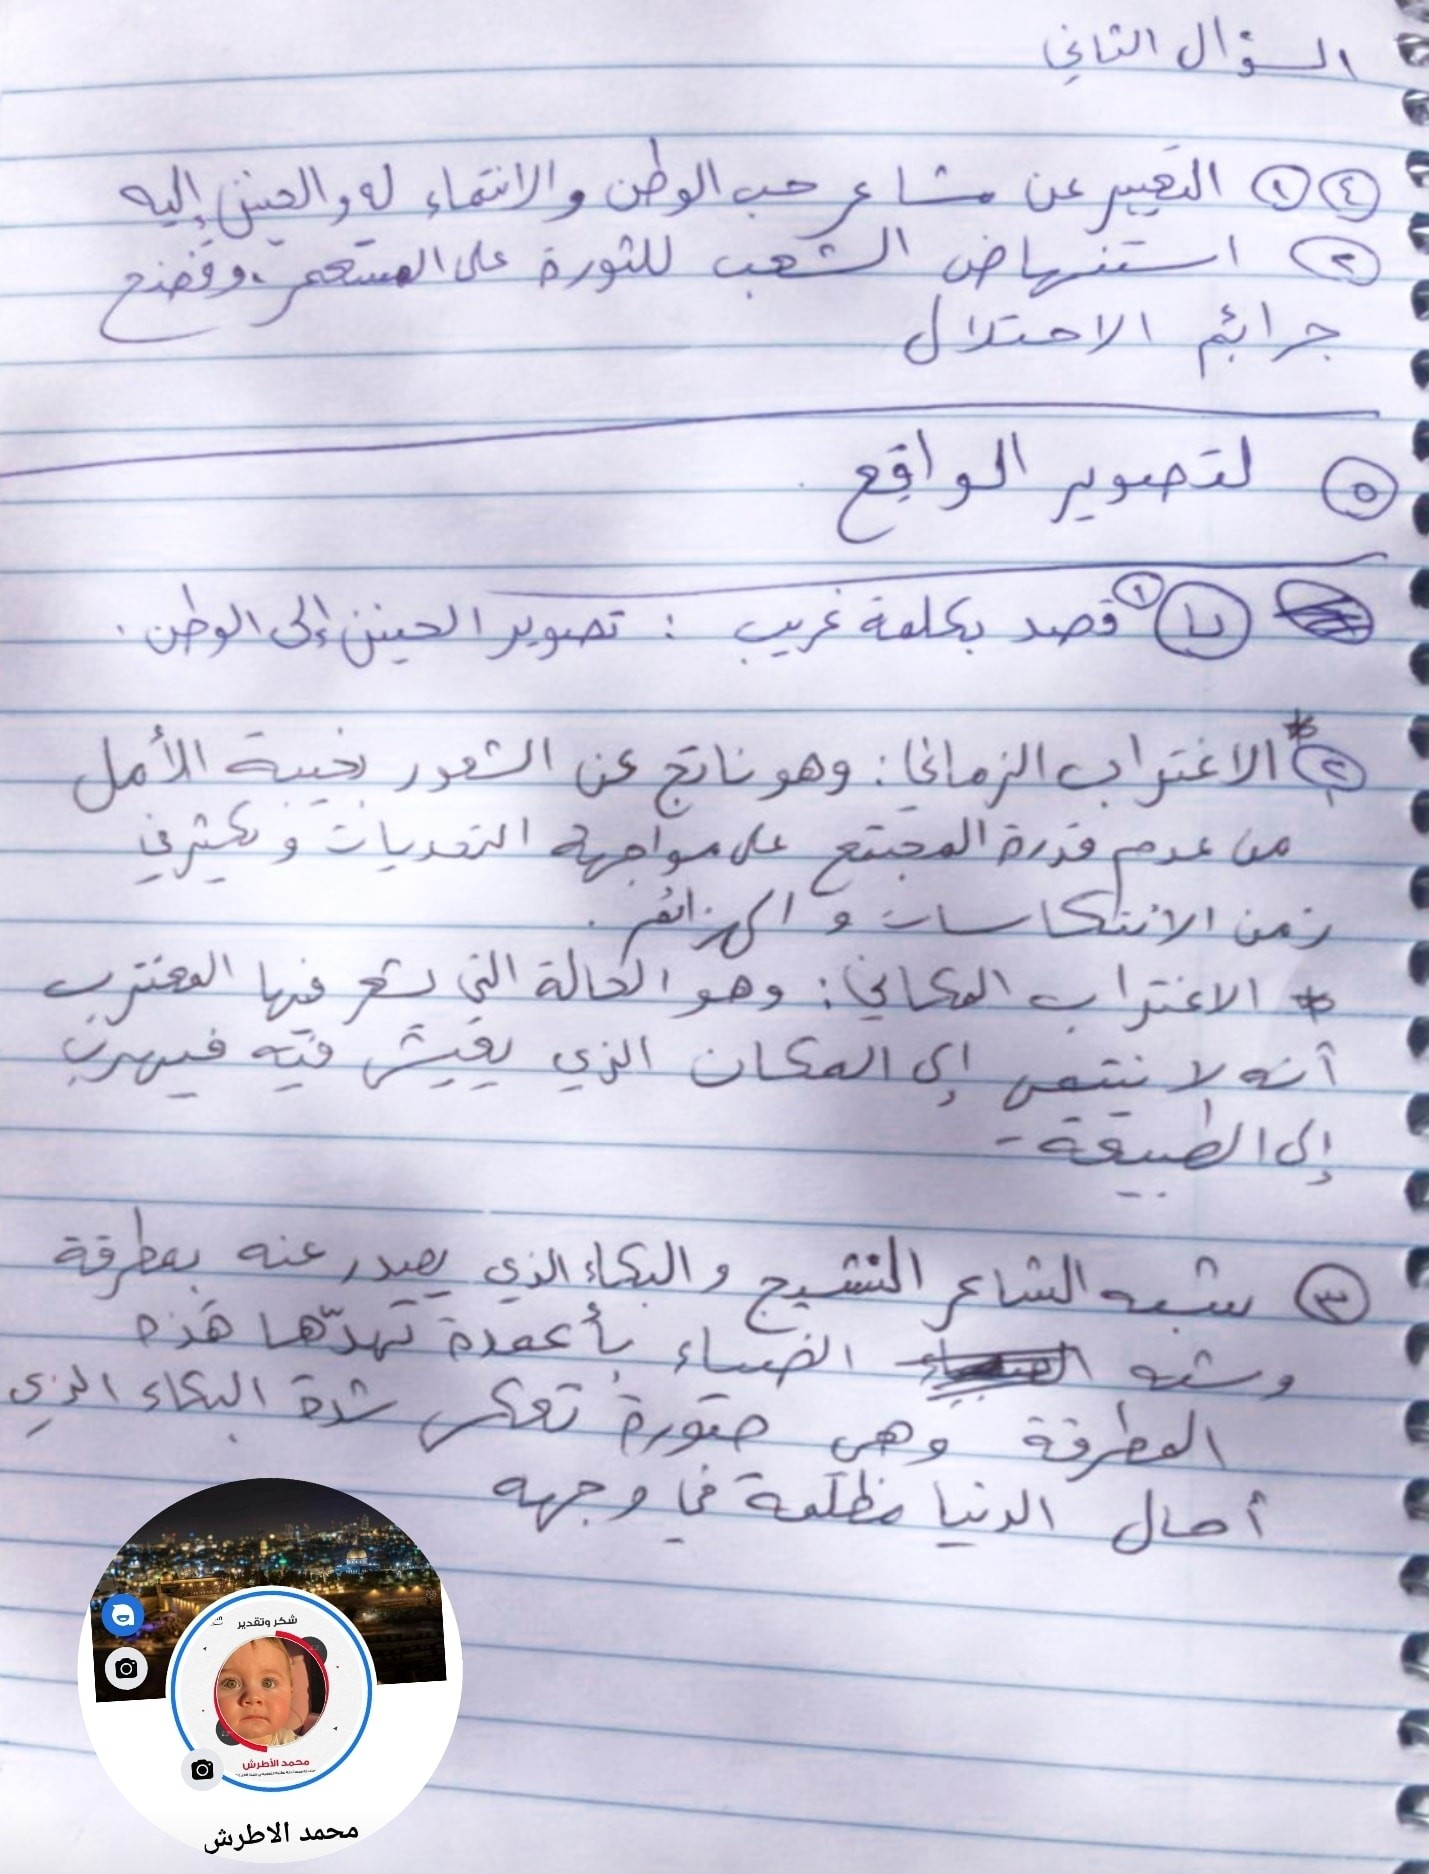 السؤال الثاني
٤ ١ التعبير عن مشاعر حب الوطن والانتماء له والحنين إليه
٢ استنهاض الشعب للثورة على المستعمر، وفضح
جرائم الاحتلال
٥ لتصوير الواقع
ب ١ قصد بكلمة غريب : تصوير الحنين إلى الوطن .
٢ * الاغتراب الزماني : وهو ناتج عن الشعور بخيبة الأمل
من عدم قدرة المجتمع على مواجهة التحديات ويكثر في
زمن الانتكاسات والهزائم .
* الاغتراب المكاني : وهو الحالة التي يشعر فيها المغترب
أنه لا ينتمي إلى المكان الذي يعيش فيه فيهرب
إلى الطبيعة -
٣ شبه الشاعر النشيج والبكاء الذي يصدر عنه بمطرقة
وشبه الضياء بأعمدة تهدّها هذه
المطرقة وهي صورة تعكس شدة البكاء الذي
أحال الدنيا مظلمة في وجهه
شكر وتقدير
محمد الأطرش
محمد الاطرش